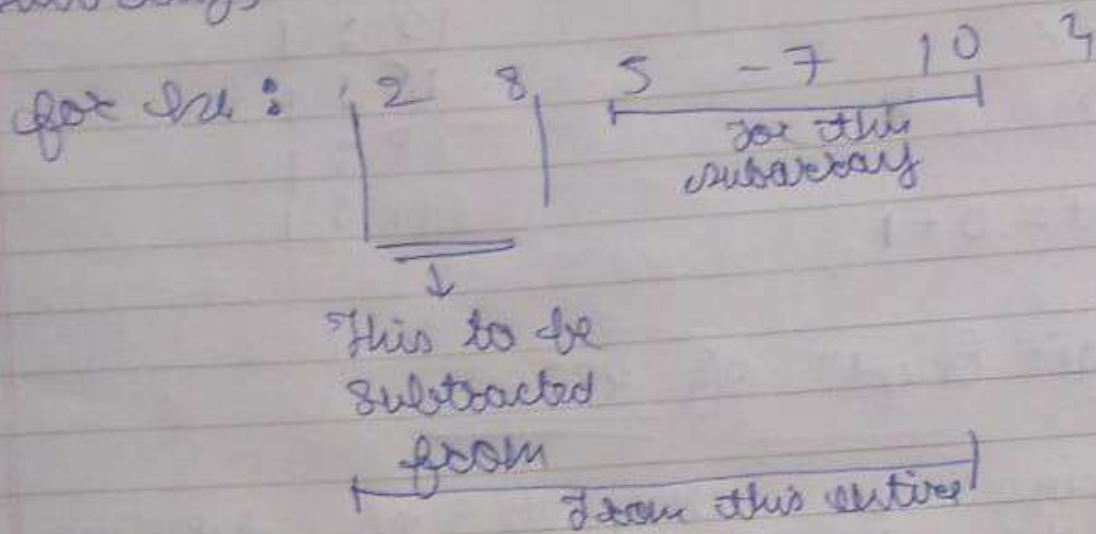 for ex : 2 8 5 -7 10 3
for this
subarray
↓
This to be
subtracted
from
From this entire